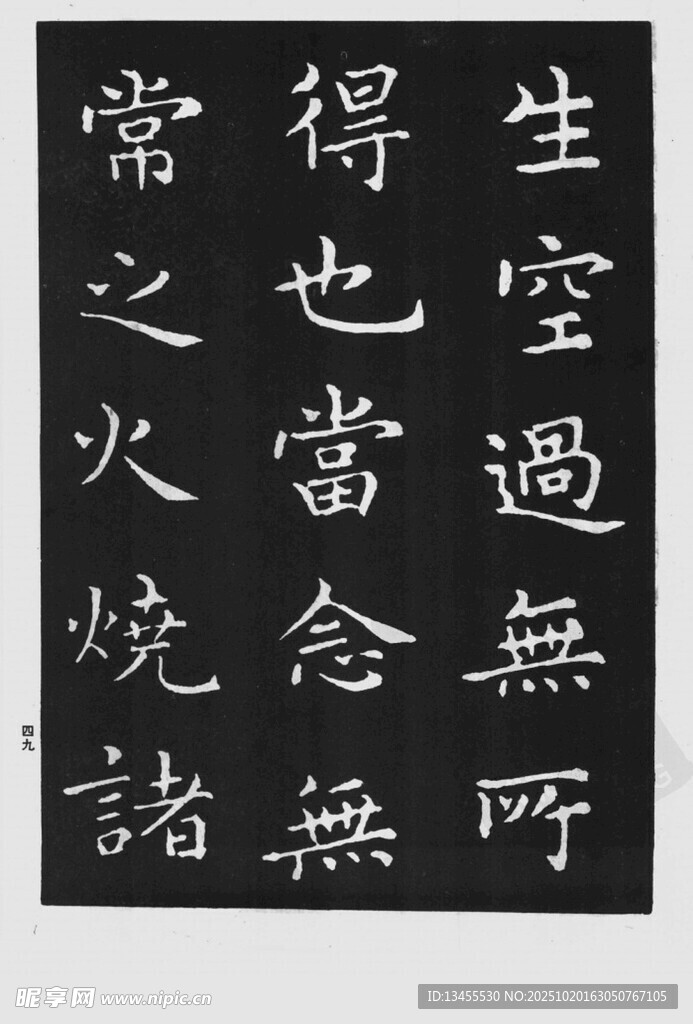 生空過無所
得也當念無
常之火燒諸
四九
昵享网 www.nipic.cn
ID:13455530 NO:20251020163050767105